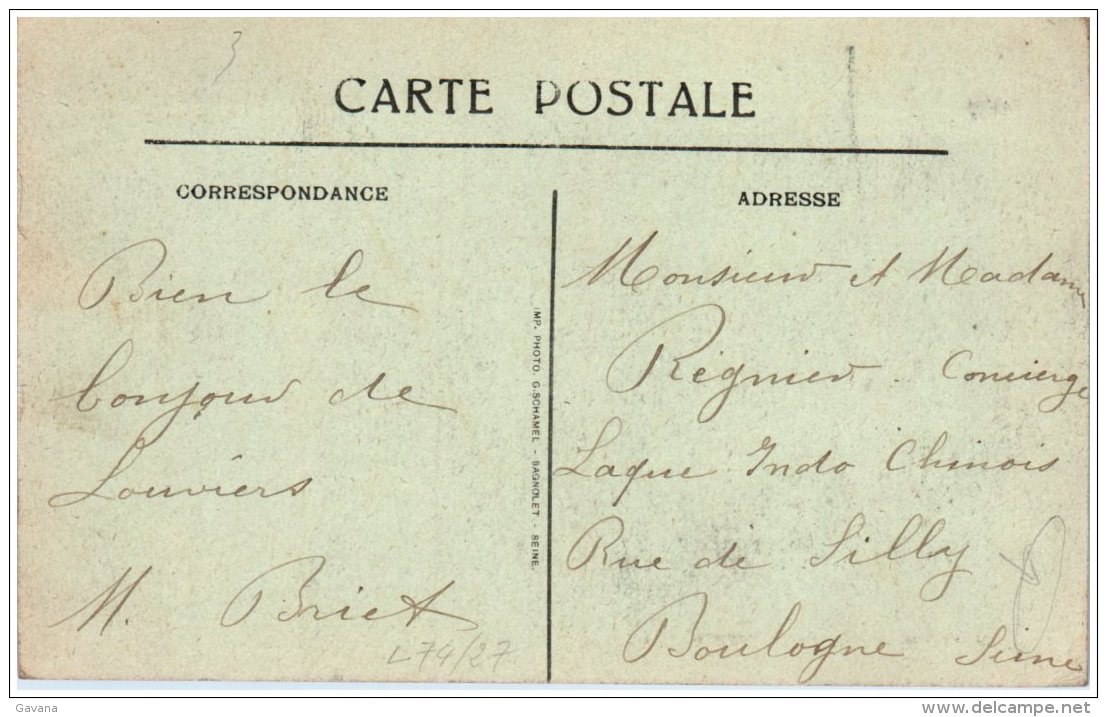 3
CARTE POSTALE
CORRESPONDANCE
Bien le
bonjour de
Louviers
M. Briet
L74/27
IMP. PHOTO. G. SCHAMEL - BAGNOLET - SEINE.
ADRESSE
Monsieur et Madame
Régnier Concierge
Laque Indo Chinois
Rue de Silly
Boulogne Seine
Gavana
delcampe.net